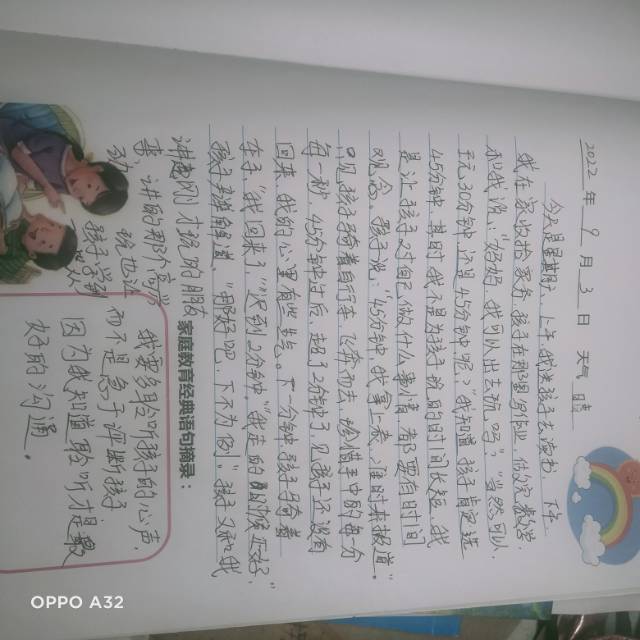 2022年9月3日 天气 晴
今天是星期六，上午我送孩子去演出，下午
我在家收拾家务，孩子在到里写作业，做完数学
和我说，“妈妈，我可以出去玩吗？”“当然可以
玩30分钟还是45分钟呢？我知道，孩子肯定选
45分钟，其时我不是为孩子玩的时间长短，我
是让孩子对自己做什么事情都要有时间
观念。孩子说：“45分钟，我拿上表，准时来报道。”
只见孩子骑着自行车飞奔而去，珍惜手中的每分
每一秒，45分钟过后，超了2分钟了，见孩子还没有
回来，我的心里有些生气。下一分钟，孩子骑着
车子“我回来了，”“迟到2分钟。”“我走的
孩子辩解道，“那好吧，下不为例”，孩子又和我
讲起刚才玩的朋友
事，讲的那个高兴
劲
孩子学到
家庭教育经典语句摘录：
我要多聆听孩子的心声，
而不是急于评断孩子
因为我知道聆听才是最
好的沟通。
OPPO A32